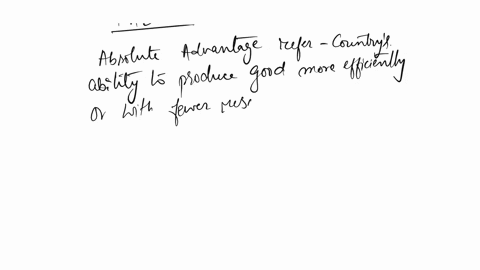 Absolute Advantage refer - Country's
ability to produce good more efficiently
or with fewer res